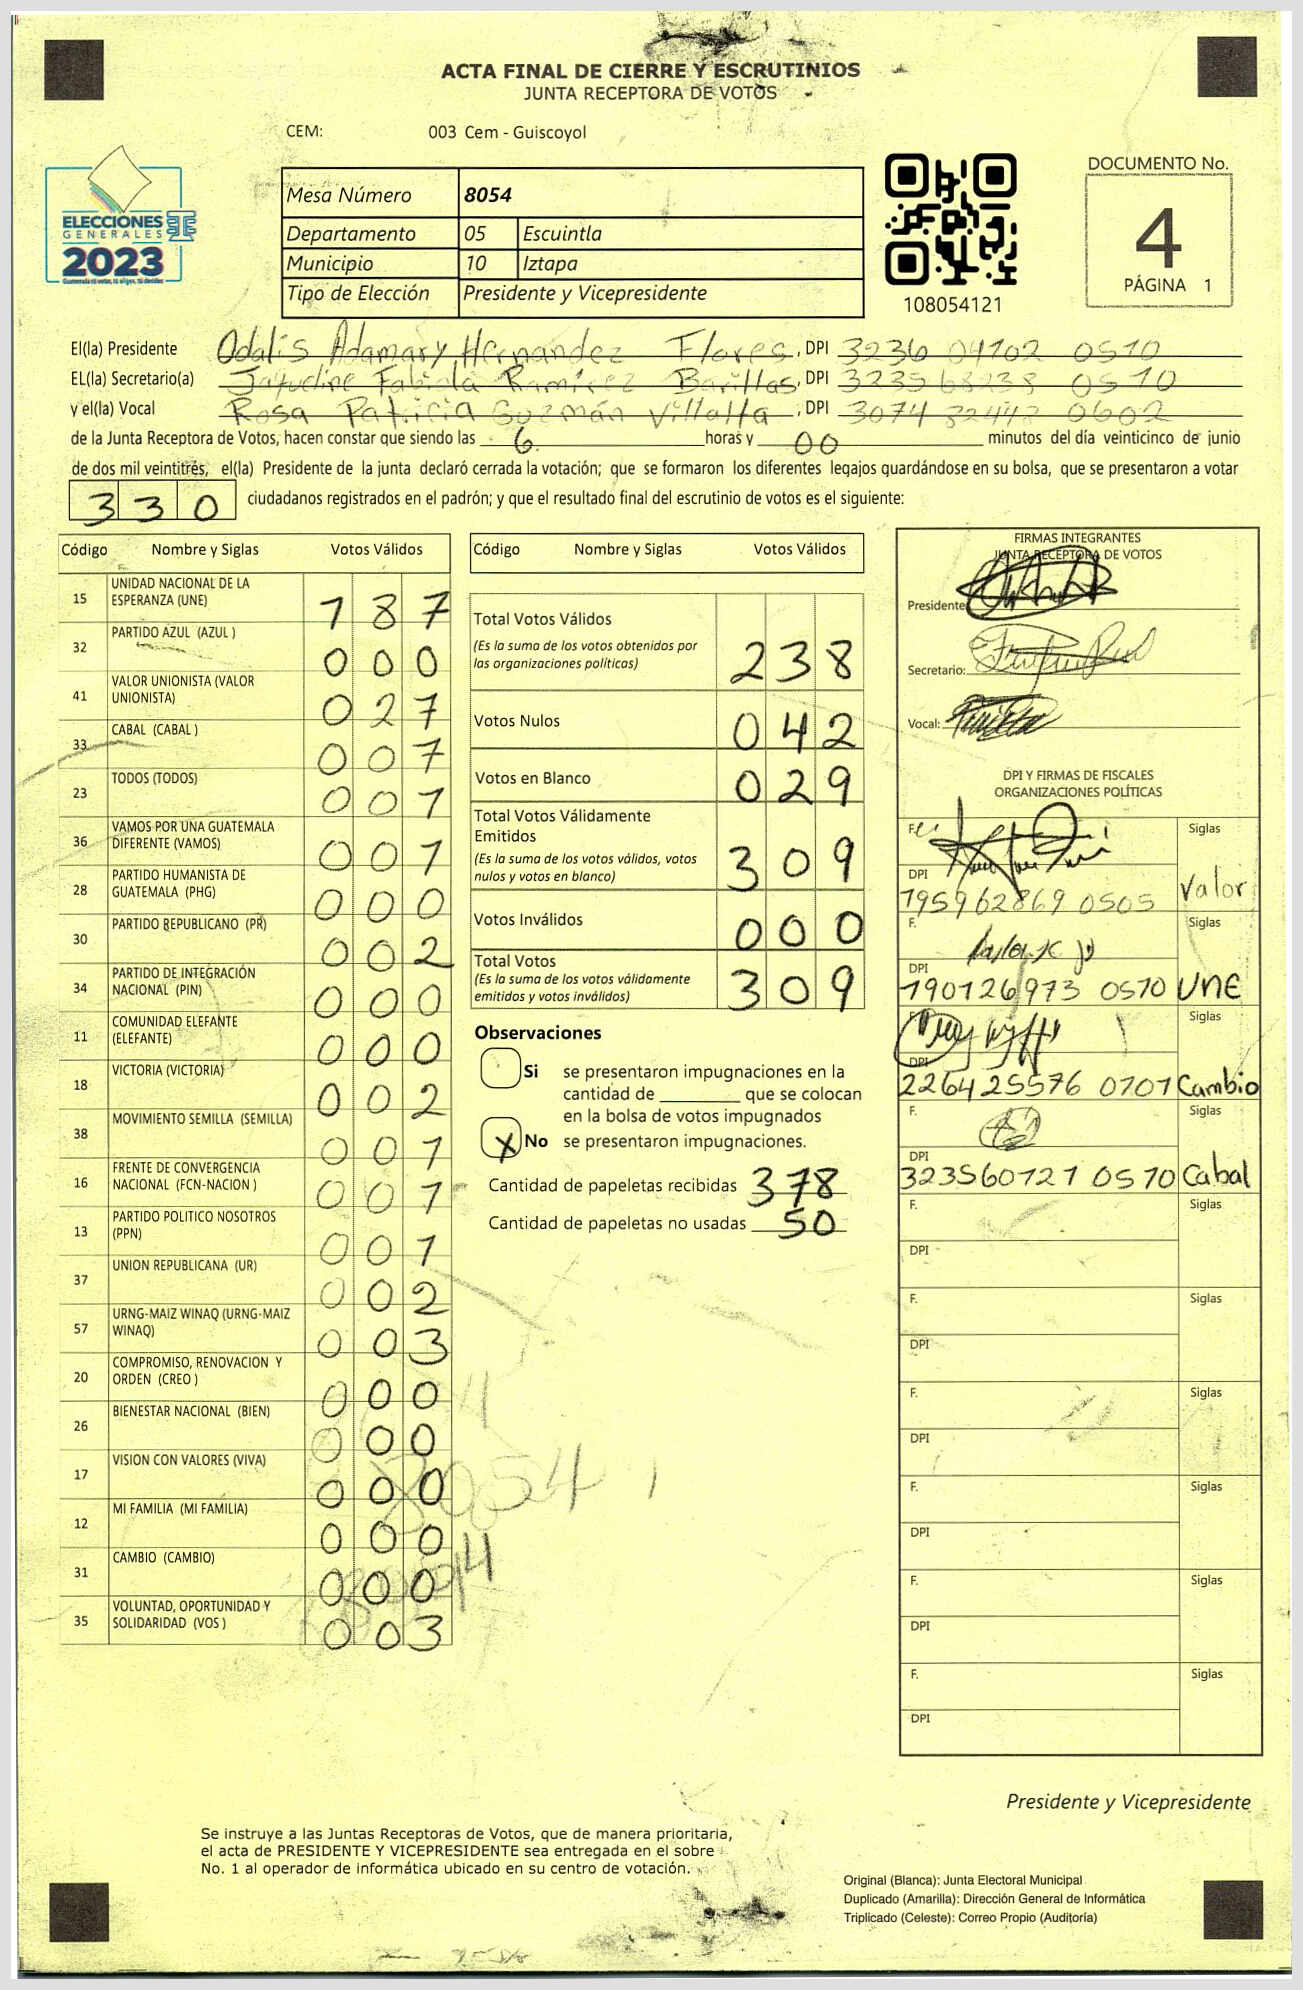 ACTA FINAL DE CIERRE Y ESCRUTINIOS
JUNTA RECEPTORA DE VOTOS
CEM: 003 Cem - Guiscoyol
ELECCIONES
GENERALES
2023
Guatemala tú votas, tú eliges, tú decides
Mesa Número 8054
Departamento 05 Escuintla
Municipio 10 Iztapa
Tipo de Elección Presidente y Vicepresidente
108054121
DOCUMENTO No.
4
PÁGINA 1
El(la) Presidente Odalis Adamary Hernandez Flores, DPI 3236 04102 0510
EL(la) Secretario(a) Jaqueline Fabiola Ramirez Barillas, DPI 323568238 0510
y el(la) Vocal Rosa Patricia Guzmán Villalta, DPI 3074 0602
de la Junta Receptora de Votos, hacen constar que siendo las 6 horas y 00 minutos del día veinticinco de junio
de dos mil veintitrés, el(la) Presidente de la junta declaró cerrada la votación; que se formaron los diferentes legajos guardándose en su bolsa, que se presentaron a votar
330 ciudadanos registrados en el padrón; y que el resultado final del escrutinio de votos es el siguiente:
Código Nombre y Siglas Votos Válidos
15 UNIDAD NACIONAL DE LA ESPERANZA (UNE) 187
32 PARTIDO AZUL (AZUL ) 000
41 VALOR UNIONISTA (VALOR UNIONISTA) 027
33 CABAL (CABAL ) 007
23 TODOS (TODOS) 001
36 VAMOS POR UNA GUATEMALA DIFERENTE (VAMOS) 001
28 PARTIDO HUMANISTA DE GUATEMALA (PHG) 000
30 PARTIDO REPUBLICANO (PR) 002
34 PARTIDO DE INTEGRACIÓN NACIONAL (PIN) 000
11 COMUNIDAD ELEFANTE (ELEFANTE) 000
18 VICTORIA (VICTORIA) 002
38 MOVIMIENTO SEMILLA (SEMILLA) 001
16 FRENTE DE CONVERGENCIA NACIONAL (FCN-NACION ) 001
13 PARTIDO POLITICO NOSOTROS (PPN) 001
37 UNION REPUBLICANA (UR) 002
57 URNG-MAIZ WINAQ (URNG-MAIZ WINAQ) 003
20 COMPROMISO, RENOVACION Y ORDEN (CREO ) 000
26 BIENESTAR NACIONAL (BIEN) 000
17 VISION CON VALORES (VIVA) 000
12 MI FAMILIA (MI FAMILIA) 000
31 CAMBIO (CAMBIO) 000
35 VOLUNTAD, OPORTUNIDAD Y SOLIDARIDAD (VOS ) 003
8054
Código Nombre y Siglas Votos Válidos
Total Votos Válidos
(Es la suma de los votos obtenidos por
las organizaciones políticas) 238
Votos Nulos 042
Votos en Blanco 029
Total Votos Válidamente
Emitidos
(Es la suma de los votos válidos, votos
nulos y votos en blanco) 309
Votos Inválidos 000
Total Votos
(Es la suma de los votos válidamente
emitidos y votos inválidos) 309
Observaciones
Si se presentaron impugnaciones en la
cantidad de ________ que se colocan
en la bolsa de votos impugnados
X No se presentaron impugnaciones.
Cantidad de papeletas recibidas 378
Cantidad de papeletas no usadas 50
FIRMAS INTEGRANTES
JUNTA RECEPTORA DE VOTOS
Presidente:
Secretario:
Vocal:
DPI Y FIRMAS DE FISCALES
ORGANIZACIONES POLÍTICAS
F. Siglas
DPI
195962869 0505 Valor
F. Siglas
DPI
190126973 0510 UNE
F. Siglas
DPI
226425576 0101 Cambio
F. Siglas
DPI
323560121 0510 Cabal
F. Siglas
DPI
F. Siglas
DPI
F. Siglas
DPI
F. Siglas
DPI
F. Siglas
DPI
F. Siglas
DPI
Presidente y Vicepresidente
Se instruye a las Juntas Receptoras de Votos, que de manera prioritaria,
el acta de PRESIDENTE Y VICEPRESIDENTE sea entregada en el sobre
No. 1 al operador de informática ubicado en su centro de votación.
Original (Blanca): Junta Electoral Municipal
Duplicado (Amarilla): Dirección General de Informática
Triplicado (Celeste): Correo Propio (Auditoría)